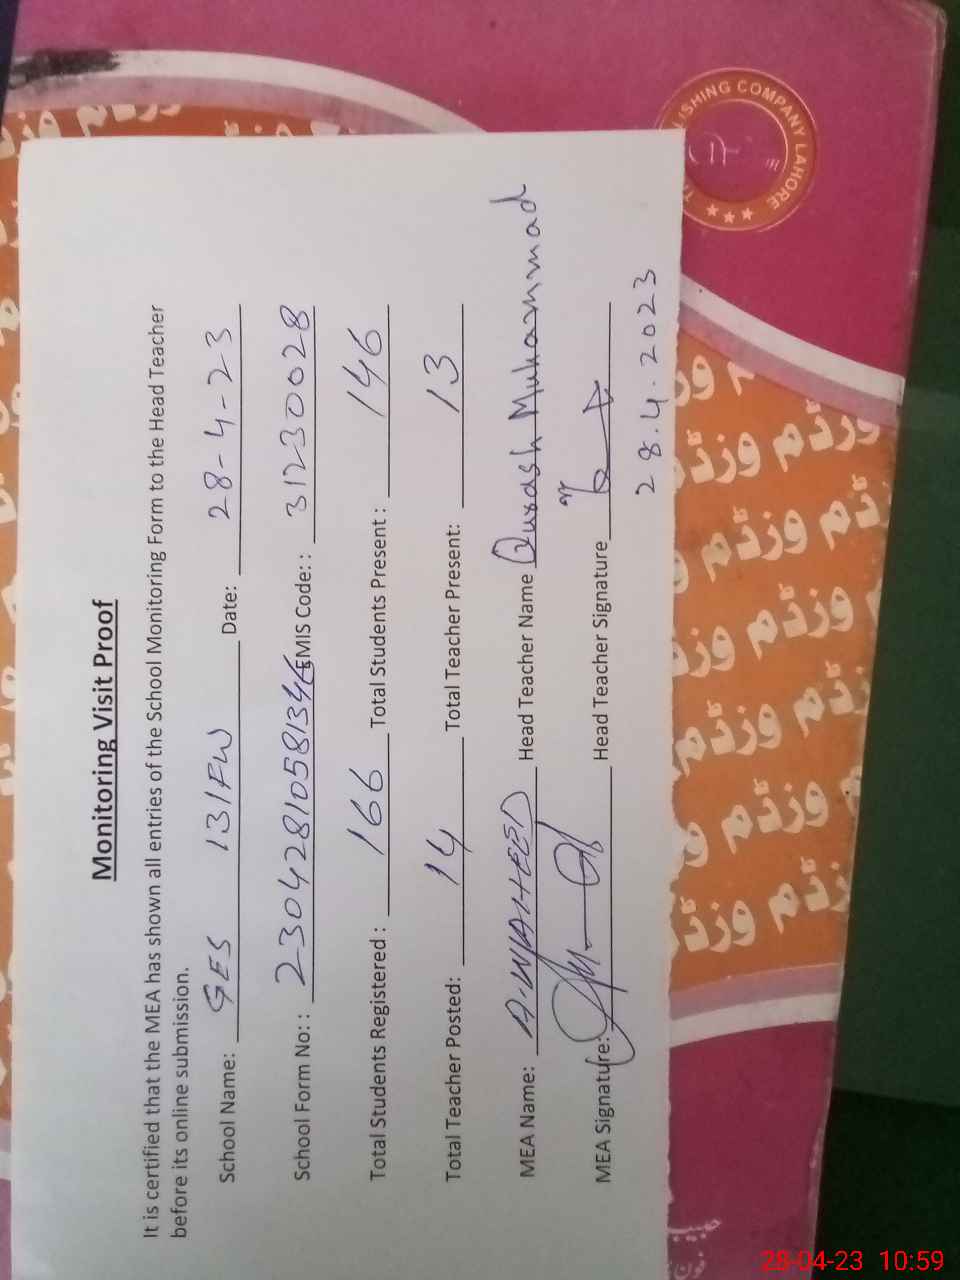 Monitoring Visit Proof
It is certified that the MEA has shown all entries of the School Monitoring Form to the Head Teacher
before its online submission.
School Name: GES 131 FW Date: 28-4-23
School Form No: : 2304281058134 EMIS Code: : 31230028
Total Students Registered : 166 Total Students Present : 146
Total Teacher Posted: 14 Total Teacher Present: 13
MEA Name: A.WAHEED Head Teacher Name Muhammad
MEA Signature: Head Teacher Signature
28.4.2023
ISHING COMPANY LAHORE
وزڈم وزڈم
وزڈم وزڈم
وزڈم وزڈم
وزڈم وزڈم
28-04-23 10:59